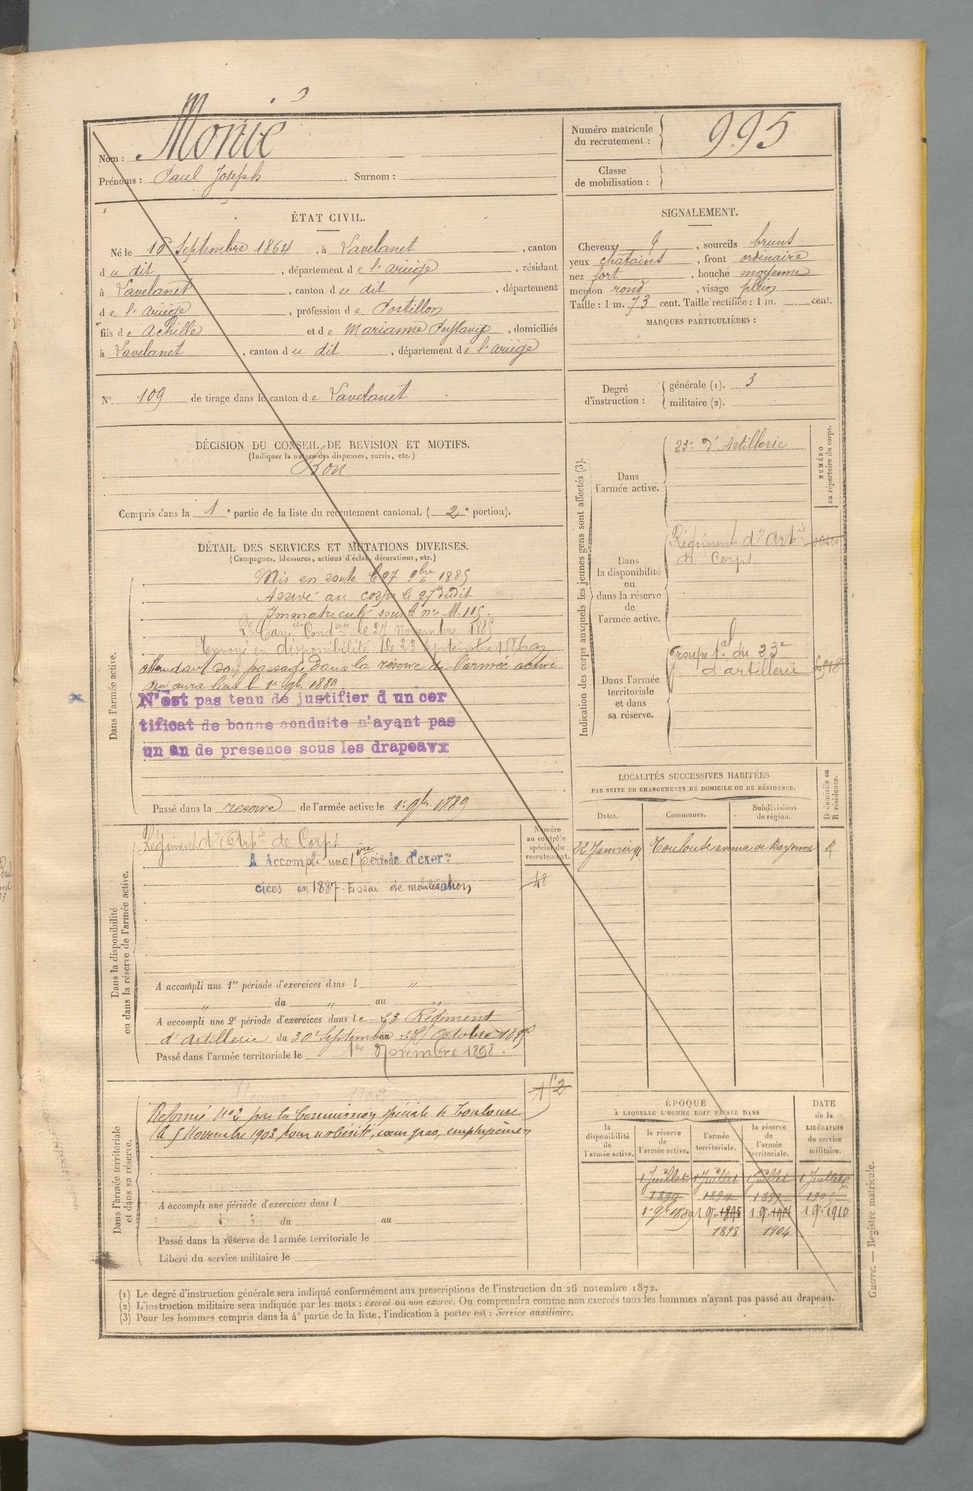 Nom : Monié
Prénoms : Paul Joseph Surnom :
Numéro matricule du recrutement : 995
Classe de mobilisation :
ÉTAT CIVIL.
Né le 16 Septembre 1864, à Lavelanet, canton
du dit, département de l'ariège, résidant
à Lavelanet, canton du dit, département
de l'ariège, profession de Postillon
fils de Achille et de Marianne, domiciliés
à Lavelanet, canton du dit, département de l'ariège
N° 109 de tirage dans le canton de Lavelanet
SIGNALEMENT.
Cheveux, sourcils bruns
yeux chatains, front ordinaire
nez fort, bouche moyenne
menton rond, visage plein
Taille : 1 m. 73 cent. Taille rectifiée : 1 m. cent.
MARQUES PARTICULIÈRES :
Degré d'instruction : générale (1). 3
militaire (2).
DÉCISION DU CONSEIL DE REVISION ET MOTIFS.
(Indiquer la nature des dispenses, sursis, etc.)
Bon
Compris dans la 1e partie de la liste du recrutement cantonal. (2e portion).
DÉTAIL DES SERVICES ET MUTATIONS DIVERSES.
(Campagnes, blessures, actions d'éclat, décorations, etc.)
Dans l'armée active.
Mis en route le 27 9bre 1885
Arrivé au corps le 27 dudit
Immatriculé sous le no M. 115.
2e Can. Condr le 27 novembre 1885
Renvoyé en disponibilité le 23 Septembre 1886 en
attendant son passage dans la réserve de l'armée active
qui aura lieu le 1er 9bre 1889
N'est pas tenu de justifier d un cer
tificat de bonne conduite n'ayant pas
un an de presence sous les drapeaux
Passé dans la réserve de l'armée active le 1er 9bre 1889
Indication des corps auxquels les jeunes gens sont affectés (3).
NUMÉRO au répertoire du corps.
Dans l'armée active. 23e d'Artillerie
Dans la disponibilité ou dans la réserve de l'armée active. Régiment d'Artrie de Corps
Dans l'armée territoriale et dans sa réserve. Groupe tal du 23e d'artillerie
LOCALITÉS SUCCESSIVES HABITÉES
PAR SUITE DE CHANGEMENTS DE DOMICILE OU DE RÉSIDENCE.
Dates. Communes. Subdivisions de région. D domicile ou R résidence.
22 Janvier 91 Toulouse R
Dans la disponibilité ou dans la réserve de l'armée active.
Numéro au contrôle spécial du recrutement.
Régiment d'Artie de Corps
A Accompli une 1ère période d'exer
cices en 1887. Essai de mobilisation
48
A accompli une 1re période d'exercices dans l
du au
A accompli une 2e période d'exercices dans le 23 Régiment
d'Artillerie du 30 Septembre au Octobre 1895
Passé dans l'armée territoriale le 1er Novembre 1898.
Dans l'armée territoriale et dans sa réserve.
Réformé no 2 par la Commission spéciale de Toulouse
le 5 Novembre 1902, pour obésité, cœur gras, emphysème
A accompli une période d'exercices dans l
du au
Passé dans la réserve de l'armée territoriale le
Libéré du service militaire le
ÉPOQUE
À LAQUELLE L'HOMME DOIT PASSER DANS
la disponibilité de l'armée active. la réserve de l'armée active. l'armée territoriale. la réserve de l'armée territoriale.
DATE de la LIBÉRATION du service militaire.
1 Juillet 1 Juillet 1 Juillet 1 Juillet
1 9bre 1889 1 9bre 1895 1 9bre 1 9bre 1910
1898 1904
(1) Le degré d'instruction générale sera indiqué conformément aux prescriptions de l'instruction du 26 novembre 1872.
(2) L'instruction militaire sera indiquée par les mots : exercé ou non exercé. On comprendra comme non exercés tous les hommes n'ayant pas passé au drapeau.
(3) Pour les hommes compris dans la 4e partie de la liste, l'indication à porter est : Service auxiliaire.
Guerre. — Registre matricule.